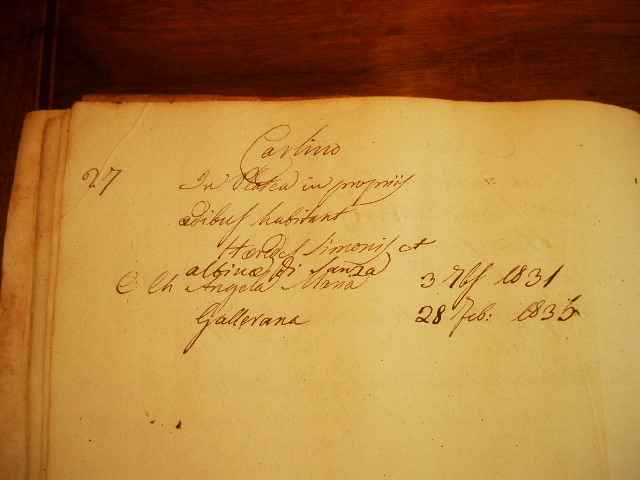 Carlino
27 In Platea in propriis
ædibus habitant
Hæredes Simonis et
albinæ di Sanza
C Ch Angela Maria 3 7bs 1831
Gallerana 28 Feb: 1835